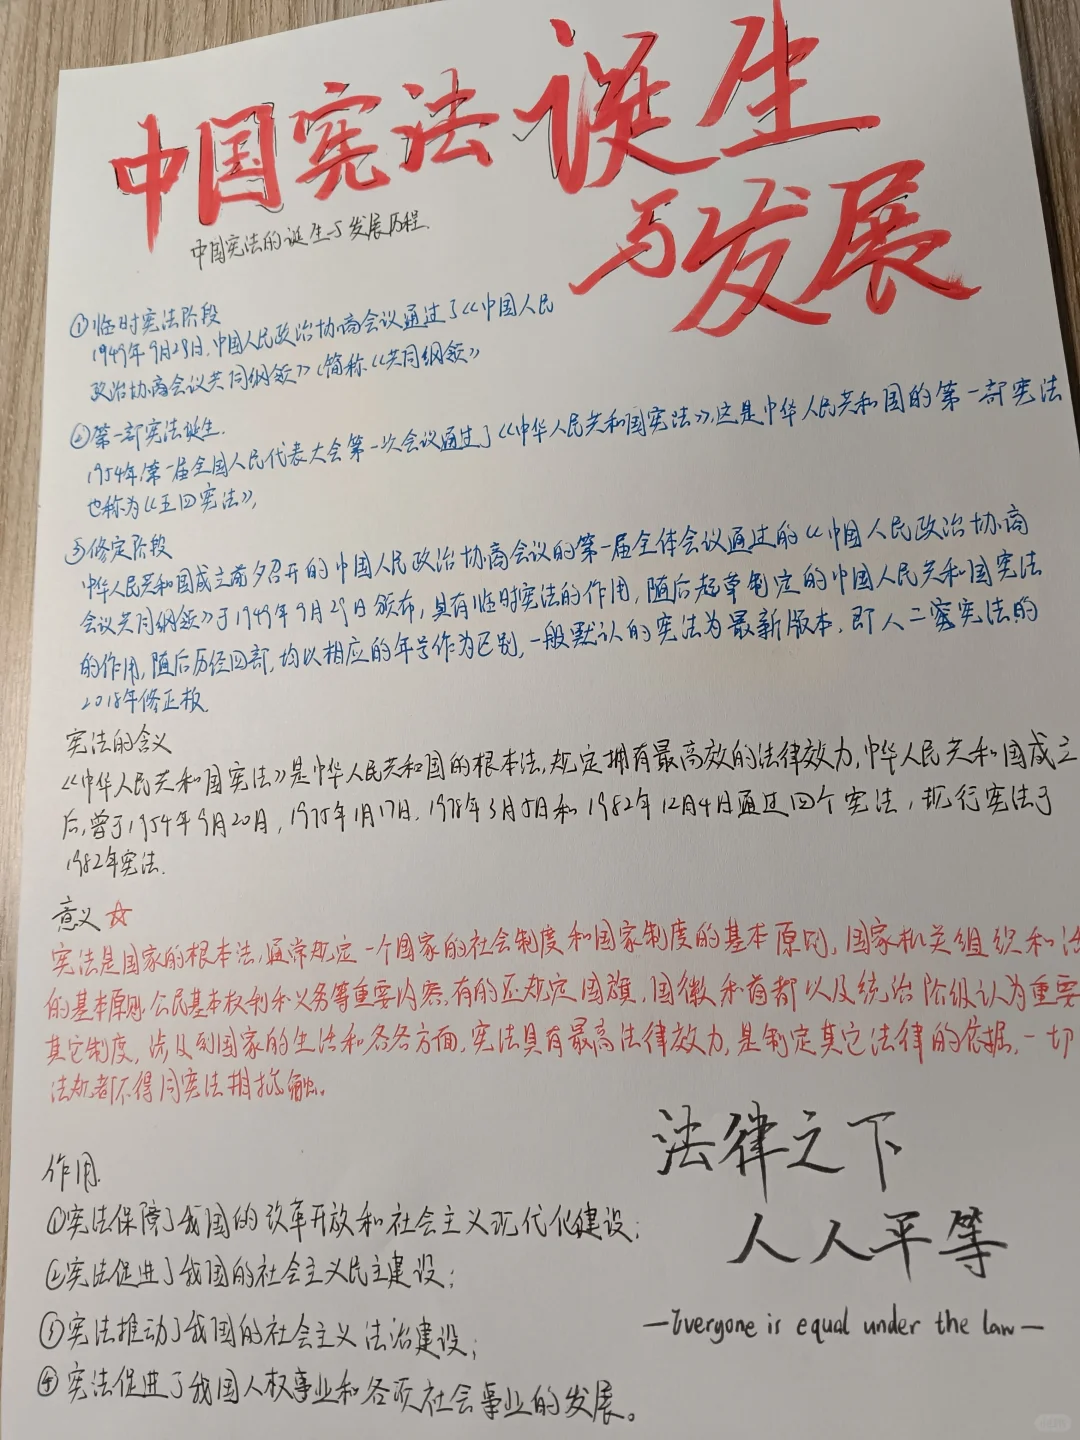 中国宪法诞生
与发展
中国宪法的诞生与发展历程.
①临时宪法阶段
1949年9月29日.中国人民政治协商会议通过了《中国人民
政治协商会议共同纲领》(简称《共同纲领》
②第一部宪法诞生.
1954年第一届全国人民代表大会第一次会议通过了《中华人民共和国宪法》,这是中华人民共和国的第一部宪法
也称为《五四宪法》,
③修定阶段
中华人民共和国成立前夕召开的中国人民政治协商会议的第一届全体会议通过的《中国人民政治协商
会议共同纲领》于1949年9月29日颁布,具有临时宪法的作用,随后起草制定的中国人民共和国宪法
的作用,随后历经四部,均以相应的年号作为区别,一般默认的宪法为最新版本,即八二宪法的
2018年修正板.
宪法的含义
《中华人民共和国宪法》是中华人民共和国的根本法,规定拥有最高效的法律效力,中华人民共和国成立
后,曾于1954年9月20日,1975年1月17日,1978年3月5日和1982年12月4日通过四个宪法,现行宪法于
1982年宪法.
意义☆
宪法是国家的根本法,通常规定一个国家的社会制度和国家制度的基本原则,国家机关组织和活
的基本原则,公民基本权利和义务等重要内容,有的还规定国旗,国徽和首都以及统治阶级认为重要
其它制度,涉及到国家的生活和各各方面,宪法具有最高法律效力,是制定其它法律的依据,一切
法规都不得同宪法相抵触。
作用.
①宪法保障了我国的改革开放和社会主义现代化建设;
②宪法促进了我国的社会主义民主建设;
③宪法推动了我国的社会主义法治建设;
④宪法促进了我国人权事业和各项社会事业的发展。
法律之下
人人平等
—Everyone is equal under the law—